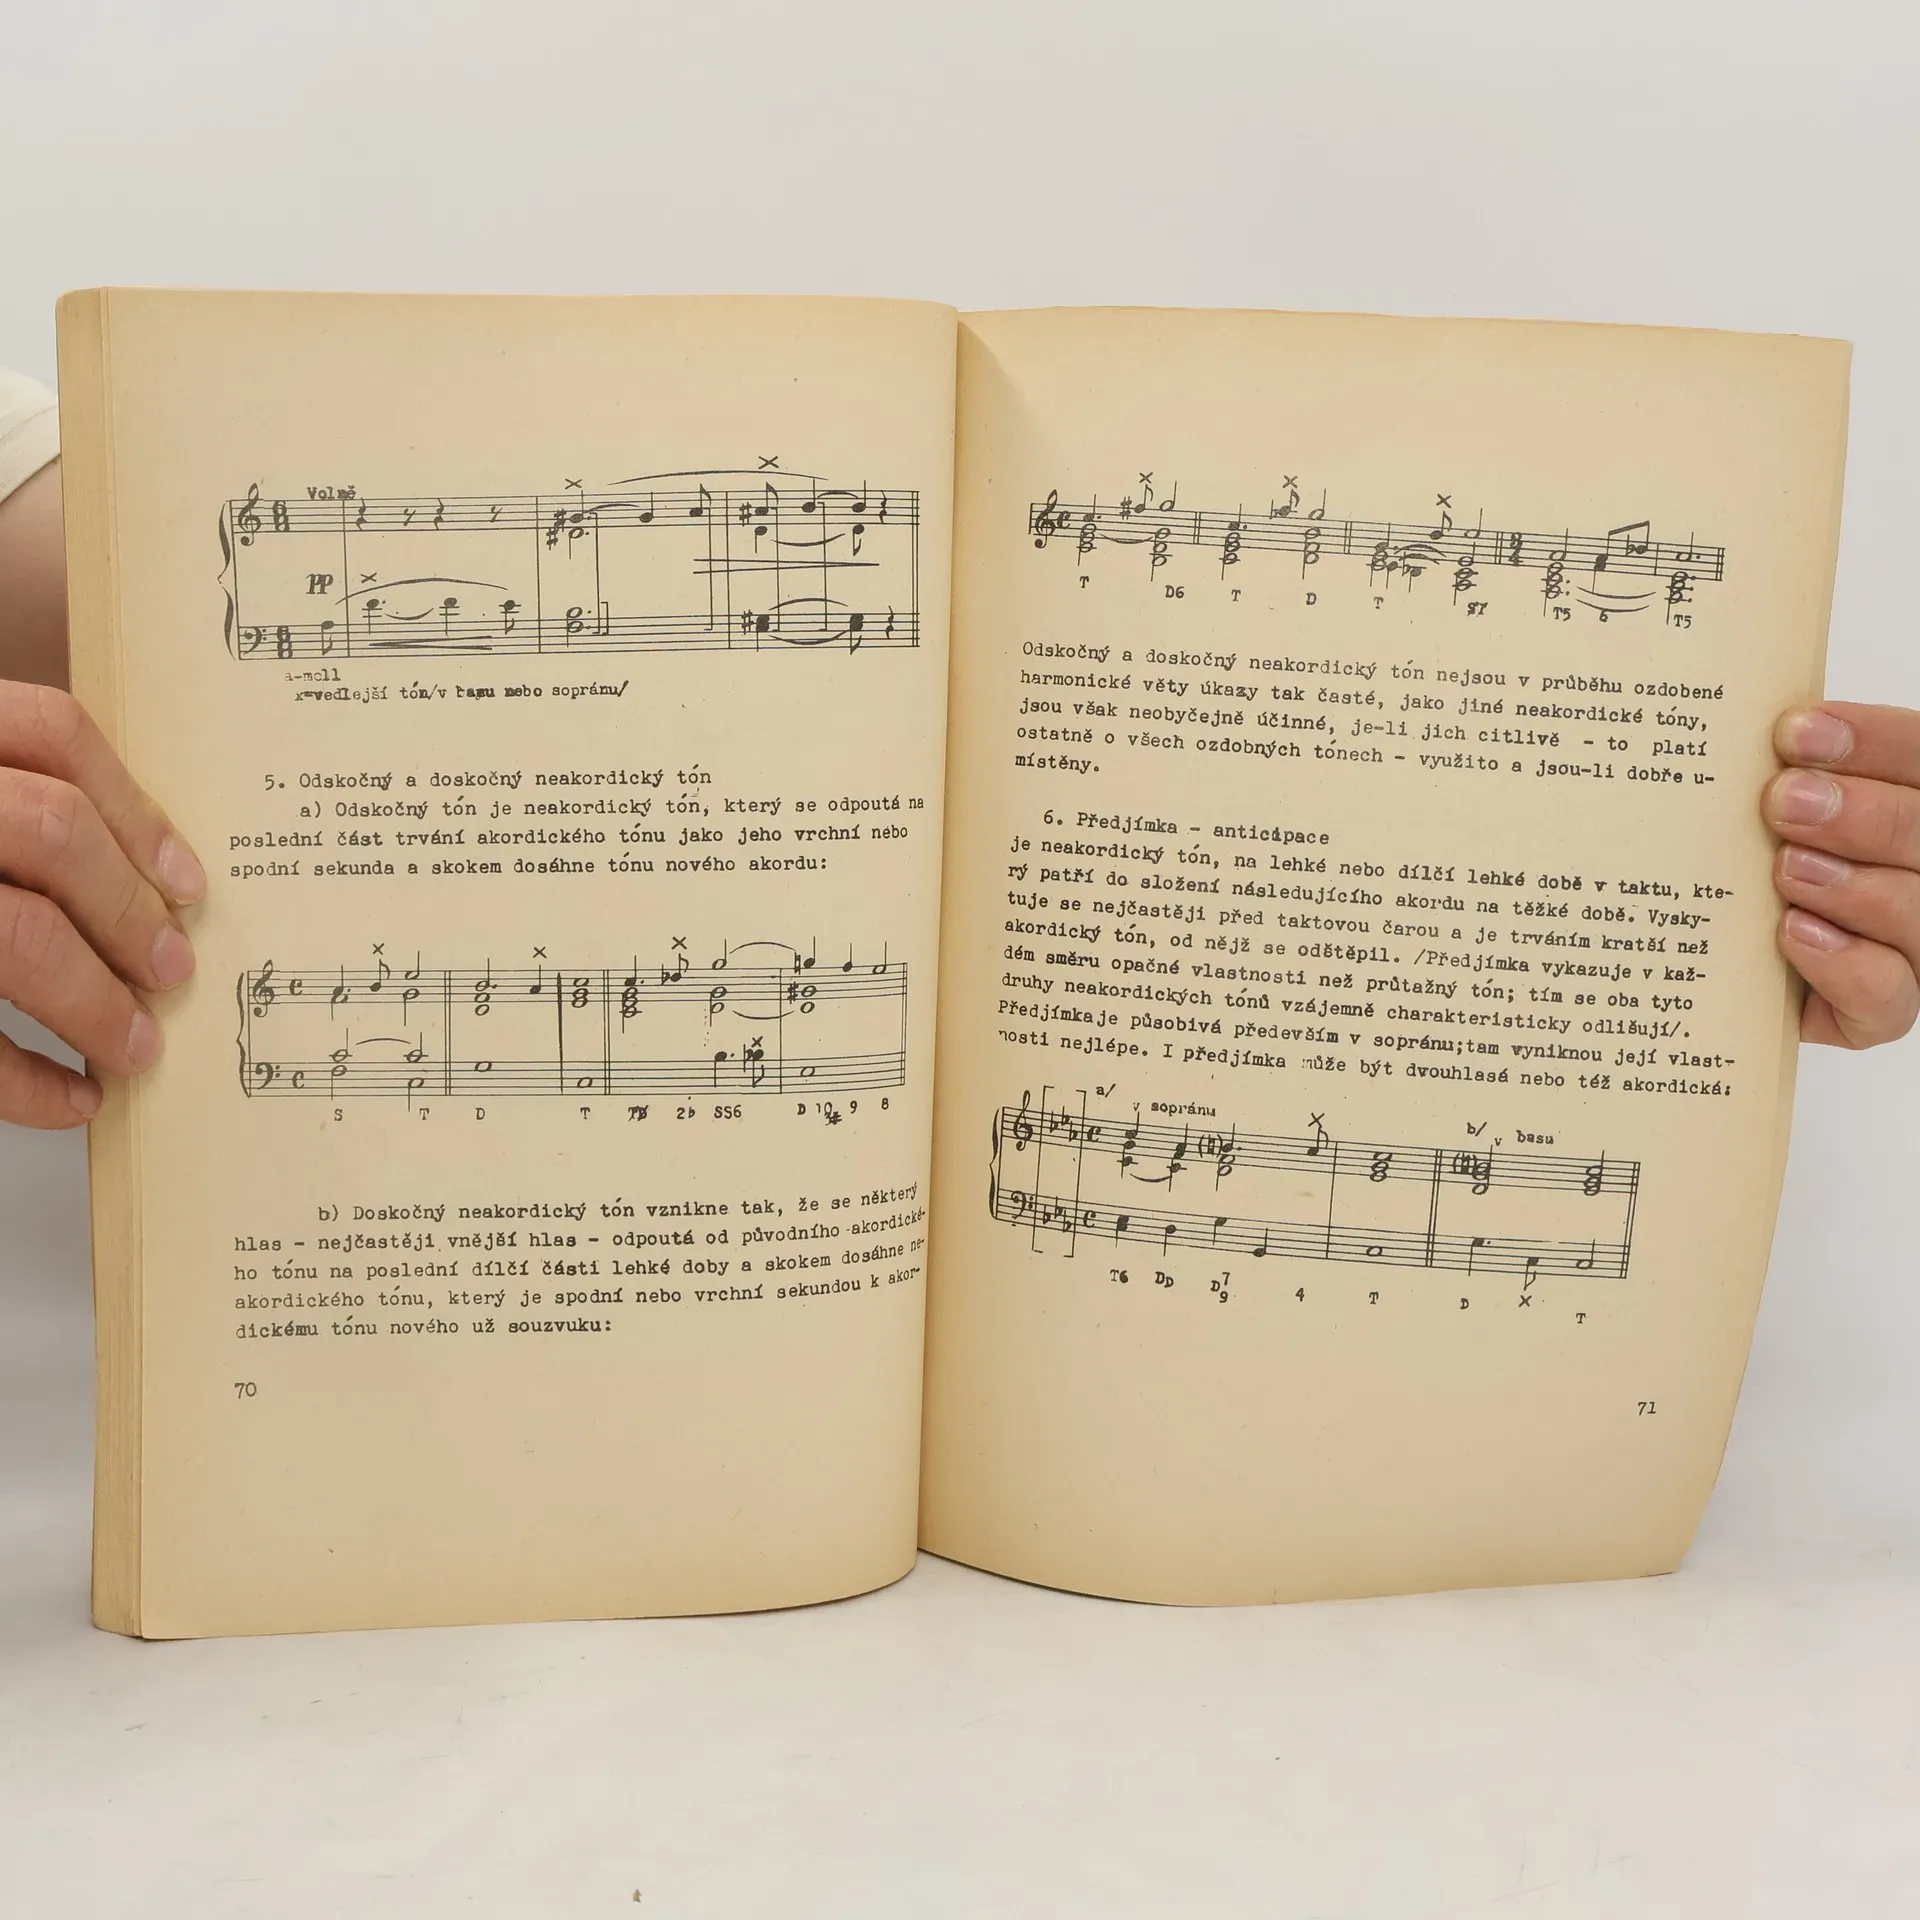 Volně
pp
a-moll
x=vedlejší tón/v basu nebo sopránu/
5. Odskočný a doskočný neakordický tón
a) Odskočný tón je neakordický tón, který se odpoutá na
poslední část trvání akordického tónu jako jeho vrchní nebo
spodní sekunda a skokem dosáhne tónu nového akordu:
S T D T 2b SS6 D 10 9 8
b) Doskočný neakordický tón vznikne tak, že se některý
hlas - nejčastěji vnější hlas - odpoutá od původního akordické-
ho tónu na poslední dílčí části lehké doby a skokem dosáhne ne-
akordického tónu, který je spodní nebo vrchní sekundou k akor-
dickému tónu nového už souzvuku:
70
T D6 T D T T5 6 T5
Odskočný a doskočný neakordický tón nejsou v průběhu ozdobené
harmonické věty úkazy tak časté, jako jiné neakordické tóny,
jsou však neobyčejně účinné, je-li jich citlivě - to platí
ostatně o všech ozdobných tónech - využito a jsou-li dobře u-
místěny.
6. Předjímka - anticipace
je neakordický tón, na lehké nebo dílčí lehké době v taktu, kte-
rý patří do složení následujícího akordu na těžké době. Vysky-
tuje se nejčastěji před taktovou čarou a je trváním kratší než
akordický tón, od nějž se odštěpil. /Předjímka vykazuje v kaž-
dém směru opačné vlastnosti než průtažný tón; tím se oba tyto
druhy neakordických tónů vzájemně charakteristicky odlišují/.
Předjímka je působivá především v sopránu;tam vyniknou její vlast-
nosti nejlépe. I předjímka může být dvouhlasá nebo též akordická:
a/ v sopránu
b/ v basu
T6 DD D7 9 4 T D x T
71